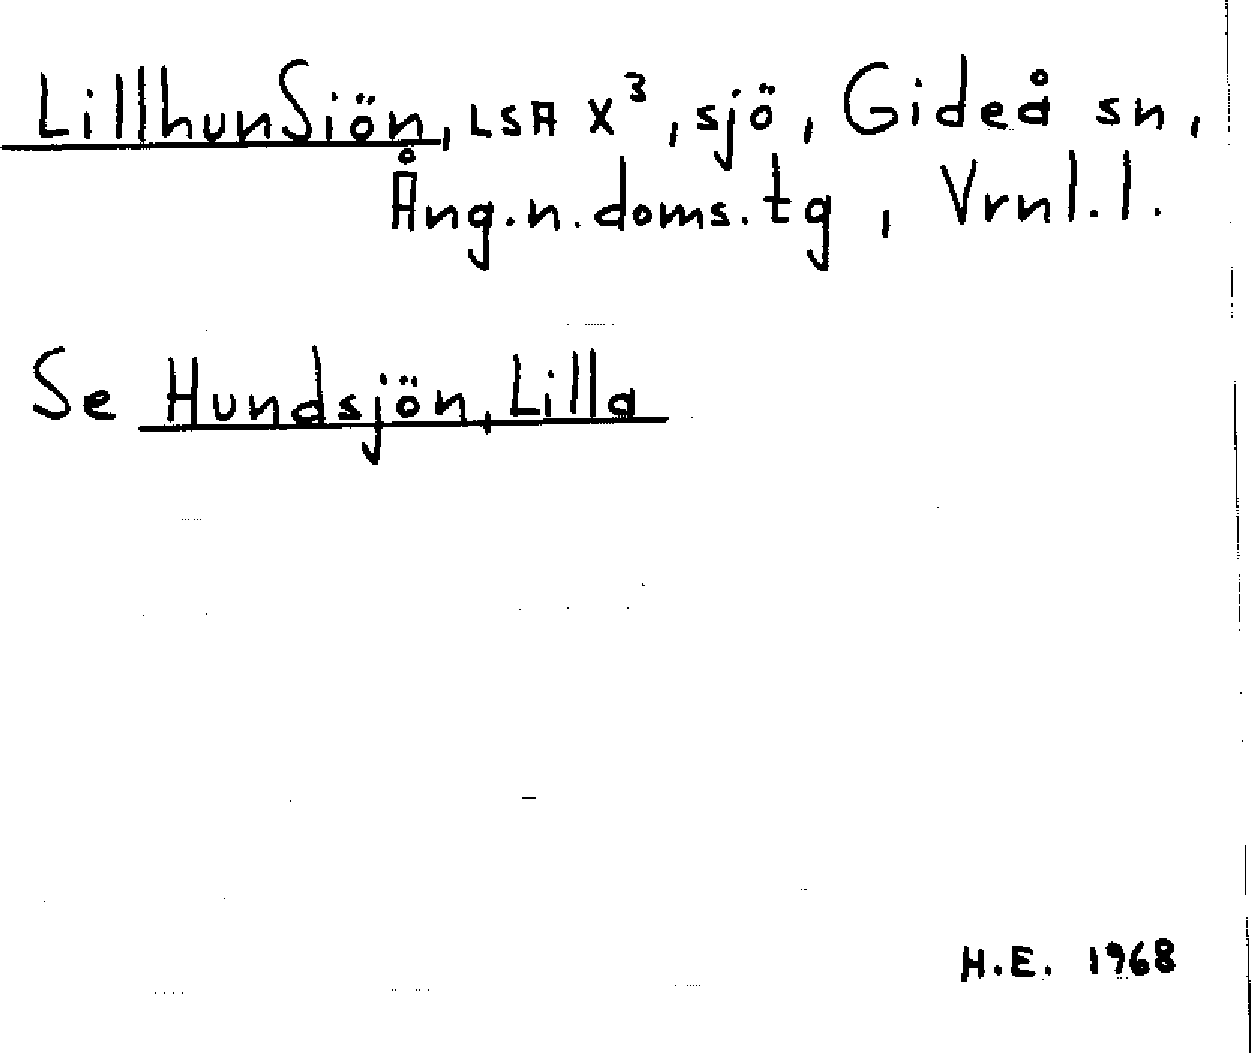 LillhunSiön, LSA X³, sjö, Gideå sn,
Ång.n.doms.tg, Vrnl.l.
Se Hundsjön, Lilla
H.E. 1968